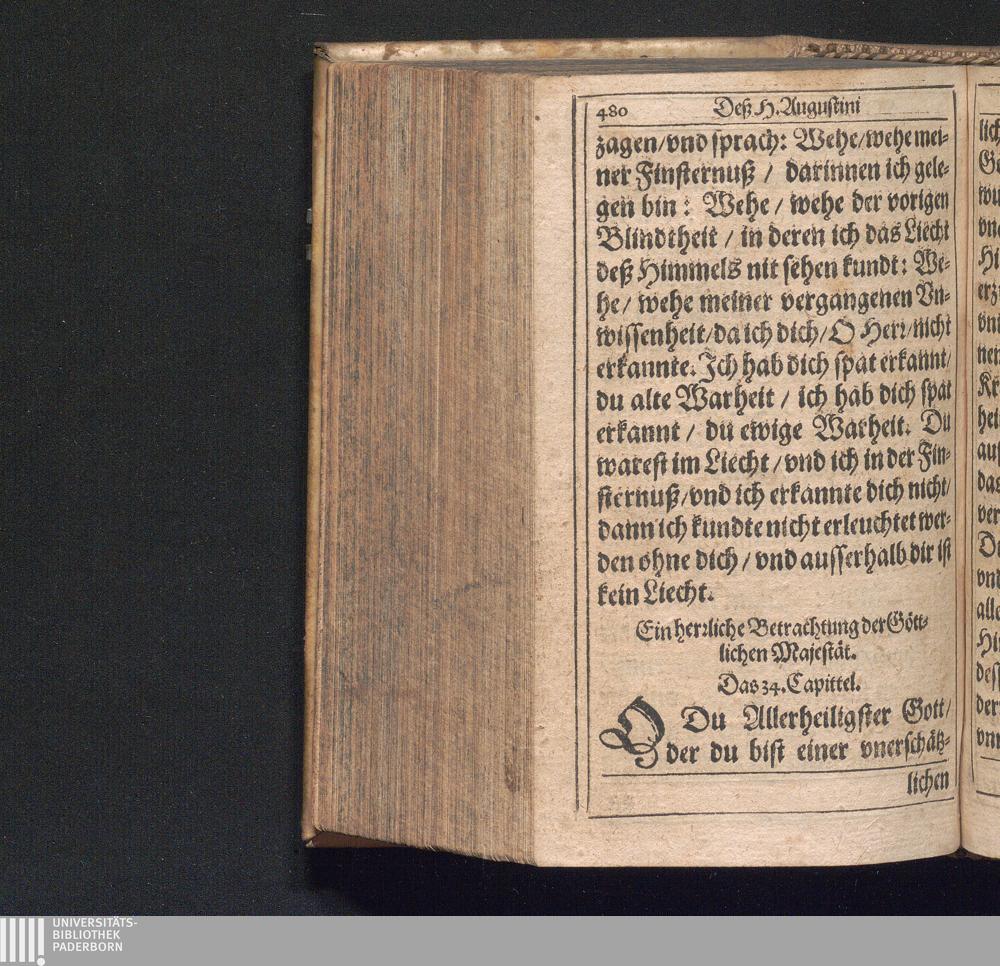 480 Deß H. Augustini
zagen/vnd sprach: Wehe/wehe mei-
ner Finsternuß / darinnen ich gele-
gen bin: Wehe / wehe der vorigen
Blindtheit / in deren ich das Liecht
deß Himmels nit sehen kundt: We-
he / wehe meiner vergangenen Vn-
wissenheit/da ich dich/O Herr/nicht
erkannte. Ich hab dich spat erkannt/
du alte Warheit / ich hab dich spat
erkannt / du ewige Warheit. Du
warest im Liecht / vnd ich in der Fin-
sternuß/vnd ich erkannte dich nicht/
dann ich kundte nicht erleuchtet wer-
den ohne dich / vnd ausserhalb dir ist
kein Liecht.
Ein herrliche Betrachtung der Gött-
lichen Majestät.
Das 34. Capittel.
O Du Allerheiligster Gott/
der du bist einer vnerschätz-
lichen
UNIVERSITÄTS-
BIBLIOTHEK
PADERBORN